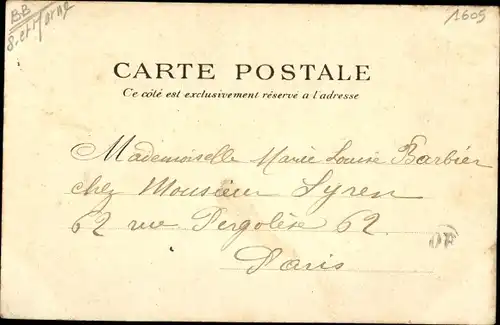 BB
S. et Marne
1605
CARTE POSTALE
Ce côté est exclusivement réservé a l'adresse
Mademoiselle Marie Louise Barbier
chez Monsieur Lyren
62 rue Pergolèse 62.
Paris
OR